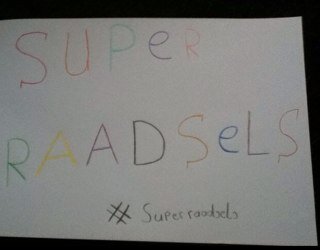 SUPeR
RAADSeLS
# Superraadsels